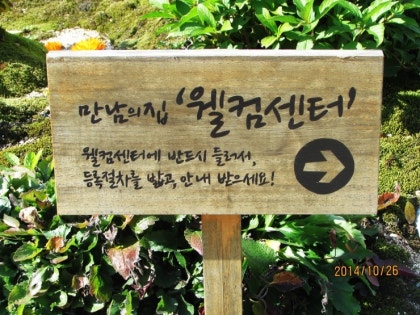 만남의집 '웰컴센터'
웰컴센터에 반드시 들러서,
등록절차를 밟고, 안내 받으세요!
2014/10/26